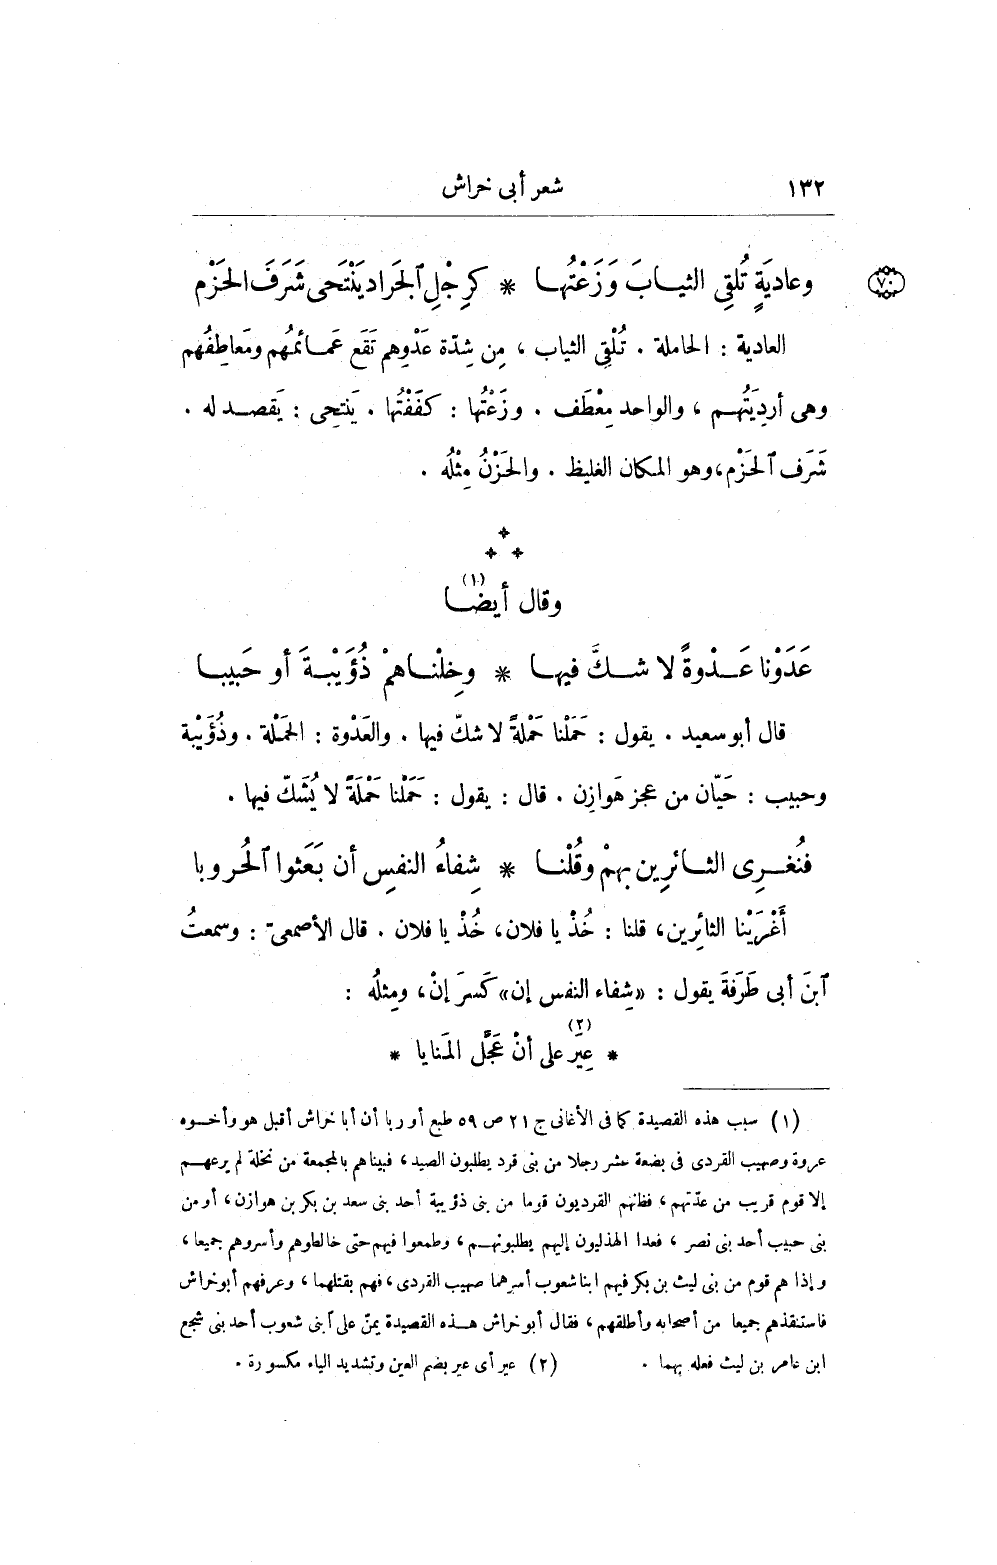 ١٣٢ شعر أبى خراش
وعاديَةٍ تُلقِى الثيابَ وَزَعْتُها * كرِجْلِ ٱلجَرادِ يَنْتَحى شَرَفَ الحَزْمِ
(٧٠)
العادية : الحاملة . تُلْقِى الثياب ، مِن شِدّة عَدْوِهم تَقَع عَمائمُهم ومَعاطِفُهم
وهى أرديَتُهم ، والواحد مِعْطَف . وزَعْتُها : كَفَفْتُها . يَنتحِى : يَقصد له .
شَرَف ٱلحَزْم، وهو المكان الغليظ . والحَزْنُ مِثْلُه .
وقال أيضا (١)
عَدَوْنا عَدْوةً لا شكَّ فيها * وخِلْناهمْ ذُؤَيْبةَ أو حَبيبا
قال أبو سعيد . يقول : حَمَلْنا حَمْلةً لا شكّ فيها . والعَدْوة : الحَمْلة . وذُؤَيْبة
وحبيب : حَيّان من عجز هَوازِن . قال : يقول : حَمَلْنا حَمْلَةً لا يُشَكّ فيها .
فنُغرِى الثائرِين بهمْ وقُلْنا * شِفاءُ النفسِ أن بَعَثوا ٱلحُروبا
أَغْرَيْنا الثائِرين، قلنا : خُذْ يا فلان، خُذْ يا فلان . قال الأصمعىّ : وسمعتُ
ٱبنَ أبى طَرَفةَ يقول : «شِفاء النفس إن» كَسرَ إنْ، ومِثلُه :
* عِيرَ (٢) على أنْ عَجَّل المَنايا *
(١) سبب هذه القصيدة كما فى الأغانى ج ٢١ ص ٥٩ طبع أوربا أن أبا خراش أقبل هو وأخوه
عروة وصهيب القردى فى بضعة عشر رجلا من بنى قرد يطلبون الصيد ، فبيناهم بالمجمعة من نخلة لم يرعهم
إلا قوم قريب من عدّتهم ، فظنهم القرديون قوما من بنى ذؤيبة أحد بنى سعد بن بكر بن هوازن ، أو من
بنى حبيب أحد بنى نصر ، فعدا الهذليون إليهم يطلبونهم ، وطمعوا فيهم حتى خالطوهم وأسروهم جميعا ،
وإذا هم قوم من بنى ليث بن بكر فيهم ابنا شعوب أسرهما صهيب القردى ، فهم بقتلهما ، وعرفهم أبو خراش
فاستنقذهم جميعا من أصحابه وأطلقهم ، فقال أبو خراش هذه القصيدة يمنّ على ٱبنى شعوب أحد بنى شجع
ابن عامر بن ليث فعله بهما . (٢) عير أى عير بضم العين وتشديد الياء مكسورة .